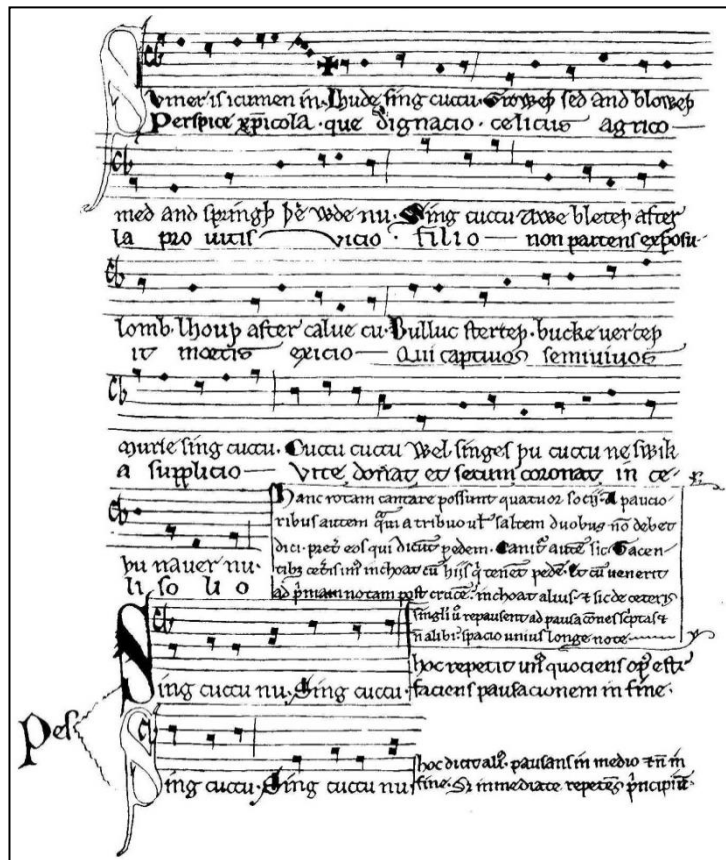 Svmer is icumen in. Lhude sing cuccu. Groweþ sed and bloweþ
Perspice xp̄icola. que dignacio. celicus agrico
med and springþ þe wde nu. Sing cuccu Awe bleteþ after
la pro uitis vicio. filio non parcens exposu
lomb. lhouþ after calue cu. Bulluc sterteþ. bucke uerteþ
it mortis exicio Qui captiuos semiuiuos
murie sing cuccu. Cuccu cuccu Wel singes þu cuccu ne swik
a supplicio Vite donat et secum coronat in ce-
þu nauer nu.
li so li o
Hanc rotam cantare possunt quatuor socij. A paucio
ribus autem qͣm a tribus ul̓ saltem duobus n̄o debet
dici. pret̓ eos qui dicūt pedem. Canit̓ aut̄e sic. Tacen
tibȝ cet̓is unꝰ inchoat cū hijs q̓ tenēt pedē. Et cū uenerit
ad p̓mam notam post crucē. inchoat alius. ⁊ sic de ceteris
singli ū repausent ad pausac̄ones sc̓ptas ⁊
n̄ alibi. spacio unius longe note
Sing cuccu nu. Sing cuccu.
hoc repetit unꝰ quociens opꝰ est.
faciens pausacionem in fine.
Pes
Sing cuccu. Sing cuccu nu
hoc dicit aliꝰ. pausans in medio ⁊ n̄ in
fine. S̄ immediate repetēs p̓ncipiū.